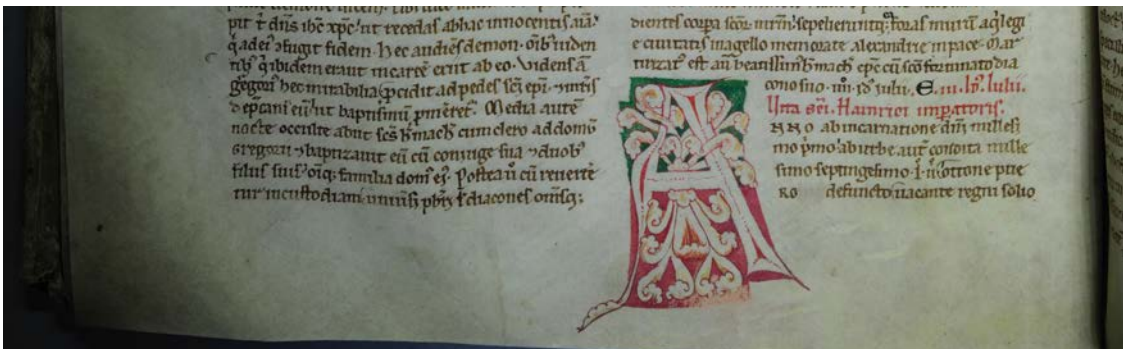 pit t dns ihc xpc ut recedas ab hac innocentis aia
q adei ɔfugit fidem. hec audies demon. oib uiden
tib qͥ ibidem erant in carce exiit ab eo. Uidens a
gregori hec mirabilia ꝓcidit ad pedes sci epi. ⁊ uxis
ɔ depcani eu ut baptismu pmeret. Media aute
nocte occulte abiit scs hmach cum clero ad domu
Gregorii ⁊ baptizauit eu cu coniuge sua ⁊ duob
filiis suis oiq; familia dom ei. Postea u cu reuerte
tur in custodiam uniusi pbri t diacones omisq;
dientes corpa scor mrm sepelierunt q; foras muru aq legi
e ciuitatis in agello memorate alexandrie in pace. Mar
tirizat est au beatissim hmach epc cu sco fortunato dia
cono suo. iiii. id iulii. E. iii. id. Iulii.
Uita sci. Hainrici imperatoris.
ANNO ab incarnatione dni millesi
mo pmo ab urbe aut condita mille
simo septingesimo. l. iiͦ. ottone pue
RO defuncto. uacante regni solio